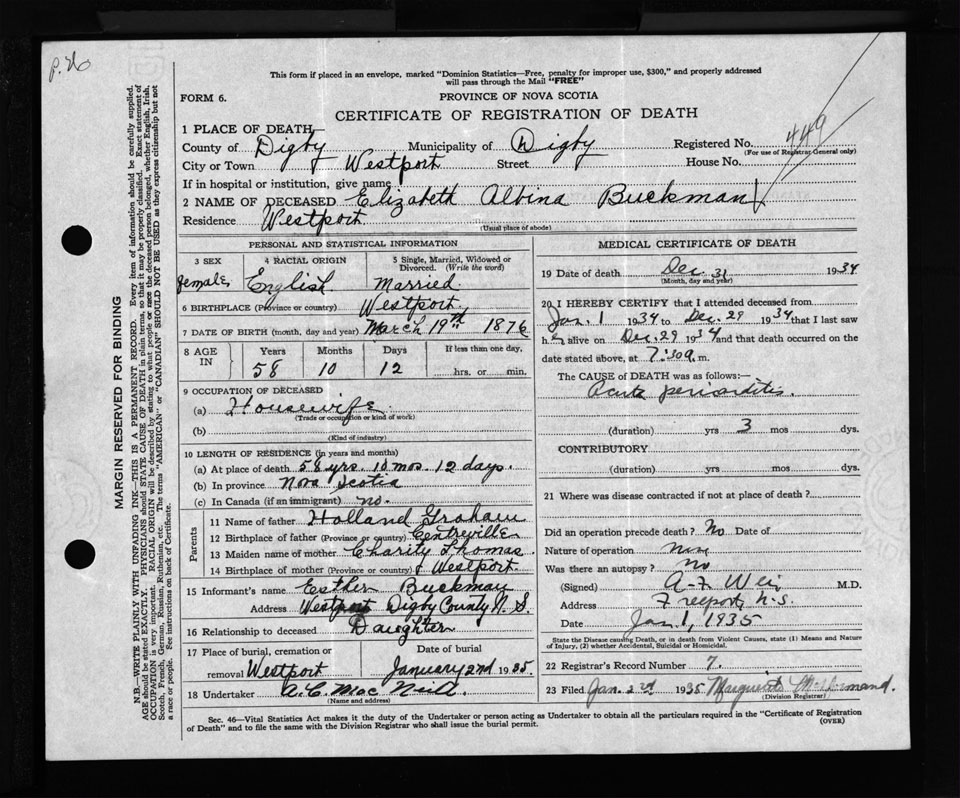 p. 20
This form if placed in an envelope, marked "Dominion Statistics—Free, penalty for improper use, $300," and properly addressed
will pass through the Mail "FREE"
FORM 6.
PROVINCE OF NOVA SCOTIA
CERTIFICATE OF REGISTRATION OF DEATH
1 PLACE OF DEATH
County of Digby Municipality of Digby Registered No. 449
(For use of Registrar General only)
City or Town Westport Street House No.
If in hospital or institution, give name
2 NAME OF DECEASED Elizabeth Albina Buckman
Residence Westport
(Usual place of abode)
PERSONAL AND STATISTICAL INFORMATION
3 SEX 4 RACIAL ORIGIN 5 Single, Married, Widowed or
Divorced. (Write the word)
female English Married.
6 BIRTHPLACE (Province or country) Westport.
7 DATE OF BIRTH (month, day and year) March 19th 1876
8 AGE IN Years Months Days If less than one day,
58 10 12 hrs. or min.
9 OCCUPATION OF DECEASED
(a) Housewife
(Trade or occupation or kind of work)
(b)
(Kind of industry)
10 LENGTH OF RESIDENCE (in years and months)
(a) At place of death 58 yrs. 10 mos. 12 days.
(b) In province Nova Scotia
(c) In Canada (if an immigrant) no.
Parents
11 Name of father Holland Graham
12 Birthplace of father (Province or country) Centreville
13 Maiden name of mother Charity Thomas
14 Birthplace of mother (Province or Country) Westport.
15 Informant's name Esther Buckman
Address Westport Digby County N. S.
16 Relationship to deceased Daughter
17 Place of burial, cremation or Date of burial
removal Westport January 2nd 1935.
18 Undertaker A. C. MacNeill
(Name and address)
MEDICAL CERTIFICATE OF DEATH
19 Date of death Dec. 31 1934
(Month, day and year)
20 I HEREBY CERTIFY that I attended deceased from
Jan. 1 1934 to Dec. 29 1934 that I last saw
her alive on Dec. 29 1934 and that death occurred on the
date stated above, at 7:30 a. m.
The CAUSE OF DEATH was as follows:—
Acute
(duration) yrs 3 mos dys.
CONTRIBUTORY
(duration) yrs mos dys.
21 Where was disease contracted if not at place of death?
Did an operation precede death? No Date of
Nature of operation
Was there an autopsy? No
(Signed) A. F. Weir M.D.
Address Freeport, N.S.
Date Jan. 1, 1935
State the Disease causing Death, or in death from Violent Causes, state (1) Means and Nature
of Injury, (2) whether Accidental, Suicidal or Homicidal.
22 Registrar's Record Number 7.
23 Filed Jan. 2nd 1935 Marguerite
(Division Registrar)
Sec. 46—Vital Statistics Act makes it the duty of the Undertaker or person acting as Undertaker to obtain all the particulars required in the "Certificate of Registration
of Death" and to file the same with the Division Registrar who shall issue the burial permit.
(OVER)
MARGIN RESERVED FOR BINDING
N.B.—WRITE PLAINLY WITH UNFADING INK—THIS IS A PERMANENT RECORD. Every item of information should be carefully supplied.
AGE should be stated EXACTLY. PHYSICIANS should STATE CAUSE OF DEATH in plain terms, so that it may be properly classified. Exact statement of
OCCUPATION is very important. RACIAL ORIGIN will be described by stating to what people or race the deceased person belonged, whether English, Irish,
Scotch, French, German, Russian, Ruthenian, etc. The terms "AMERICAN" or "CANADIAN" SHOULD NOT BE USED as they express citizenship but not
a race or people. See instructions on back of Certificate.